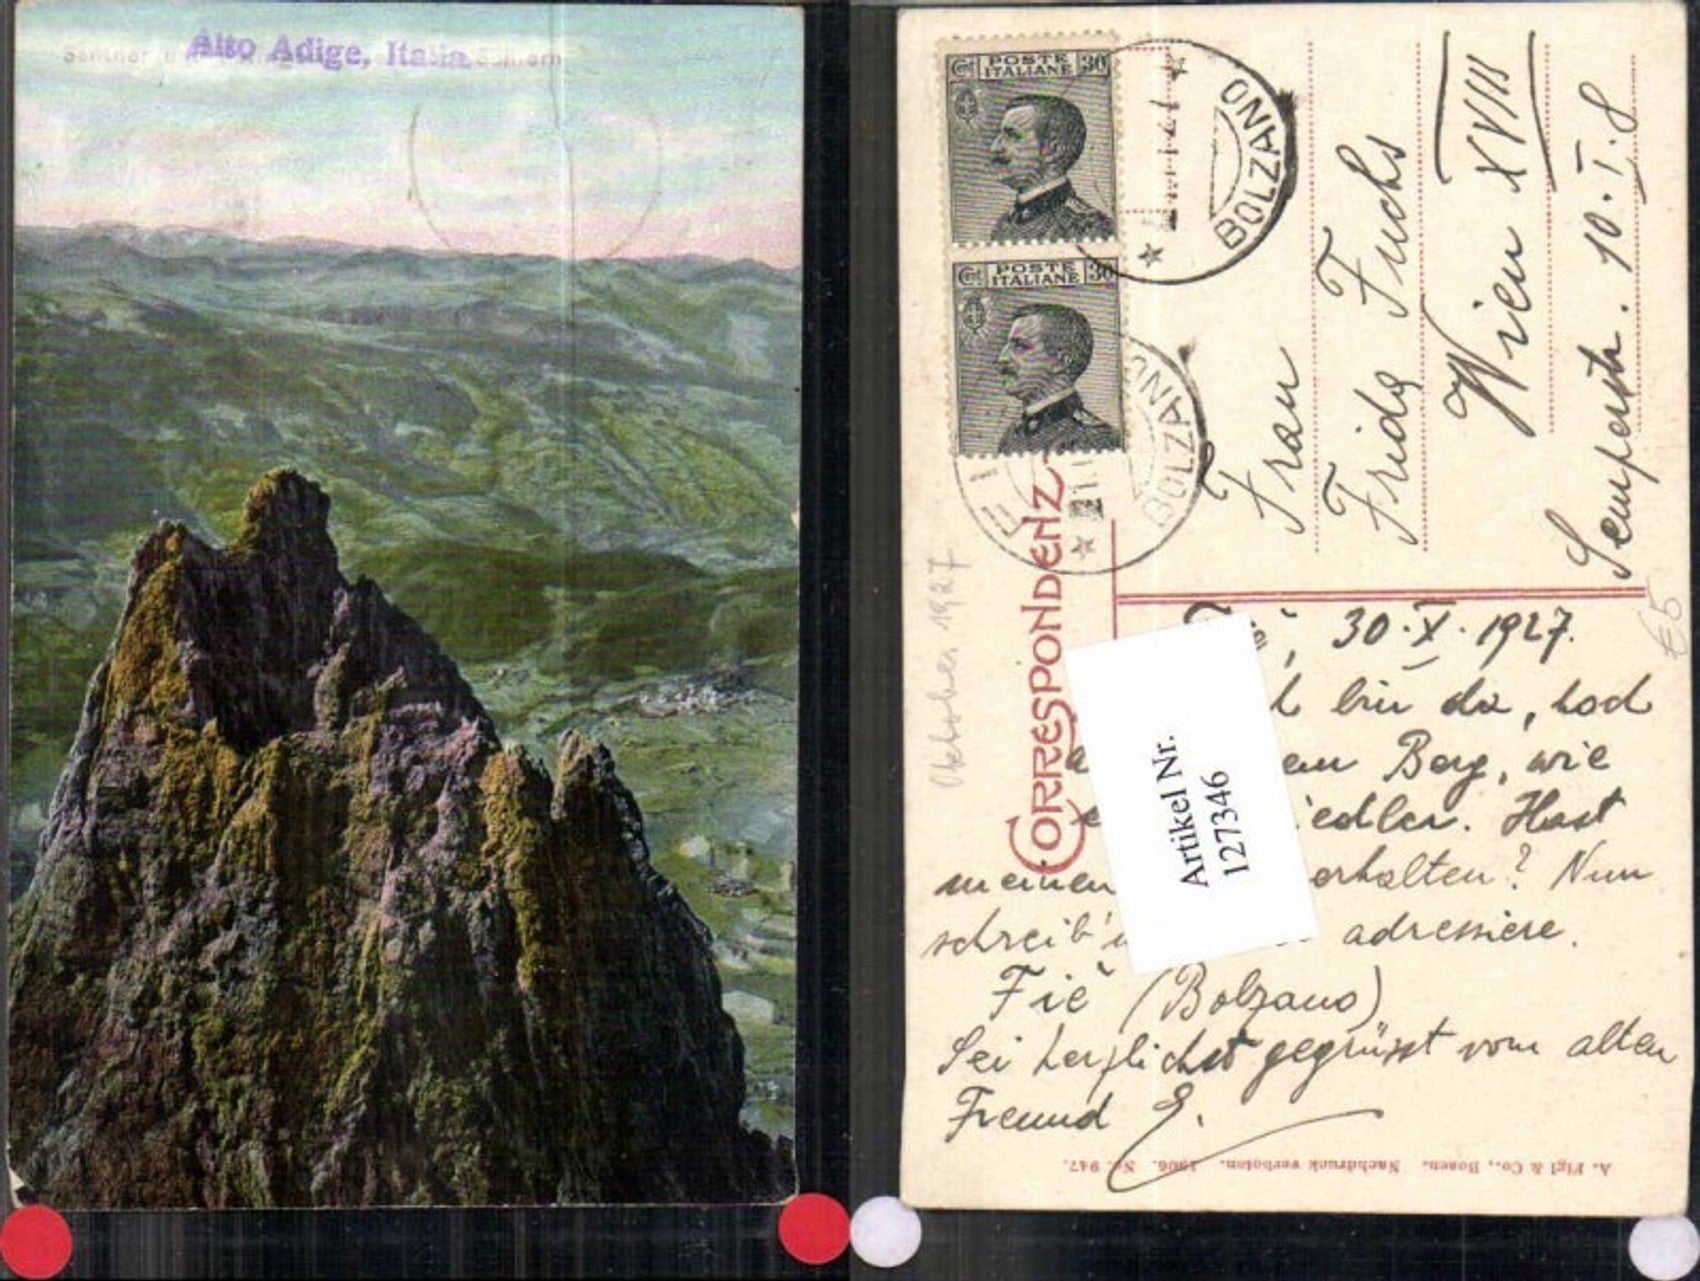 Alto Adige, Italia
Santner
Schlern
Cent POSTE ITALIANE 30
Cent POSTE ITALIANE 30
BOLZANO
BOLZANO
CORRESPONDENZ
Oktober 1927
Frau
Frida Fuchs
Wien XVIII
Semperstr. 10. I. 8
€5
30. X. 1927.
bin da, hoch
Berg, wie
Hast
meinen erhalten? Nun
schreib' adressiere.
Fiè (Bolzano)
Sei herzlichst gegrüsst vom alten
Freund E.
Artikel Nr.
127346
A. Figl & Co., Bozen. Nachdruck verboten. 1906. Nr. 947.